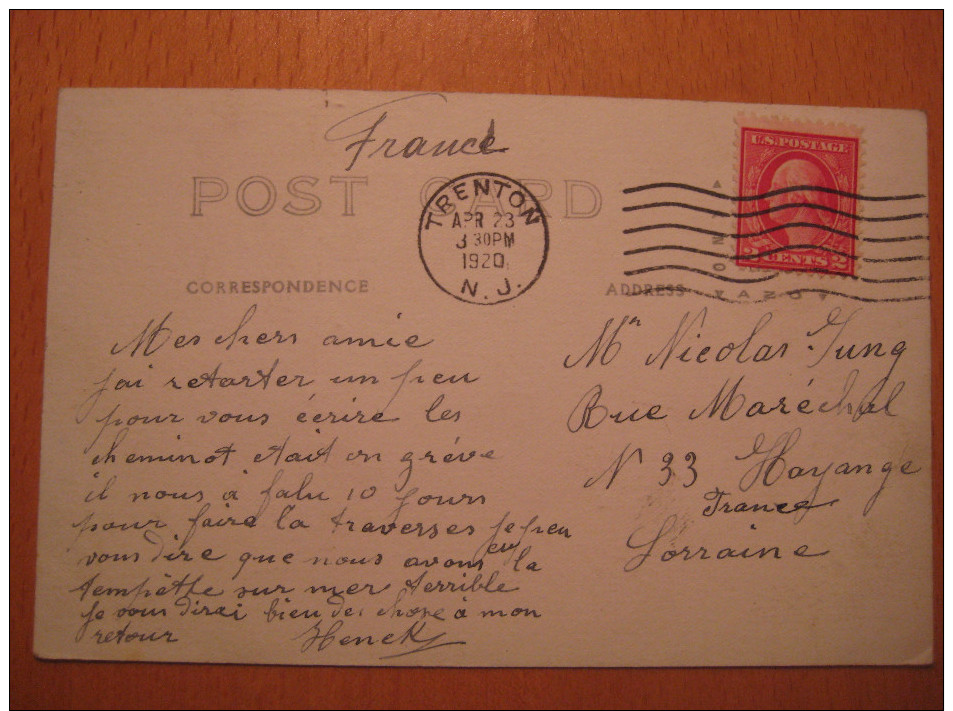 France
POST CARD
TRENTON
APR 23
3 30PM
1920
N. J.
U.S. POSTAGE
2 CENTS 2
CORRESPONDENCE
ADDRESS
Mes chers amie
j'ai retarter un peu
pour vous écrire les
cheminot était en grève
il nous à falu 10 jours
pour faire la traverses je peu
vous dire que nous avons eu la
tempèthe sur mer terrible
je vous dirai bien des chose à mon
retour Henck
Mr Nicolas Jung
Rue Maréchal
N 33 Hayange
France
Lorraine